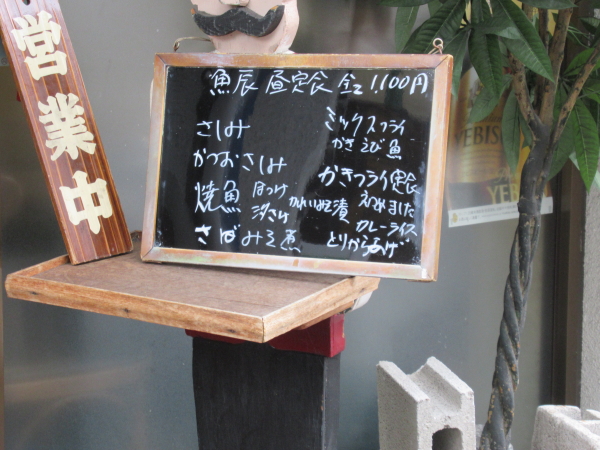 営業中
魚辰 昼定食 全て 1,100円
さしみ
かつおさしみ
焼魚 ほっけ
汐さけ
かれい味そ漬
さばみそ煮
ミックスフライ
かき えび 魚
かきフライ定食
はじめました
カレーライス
とりから揚げ
YEBIS
YEB